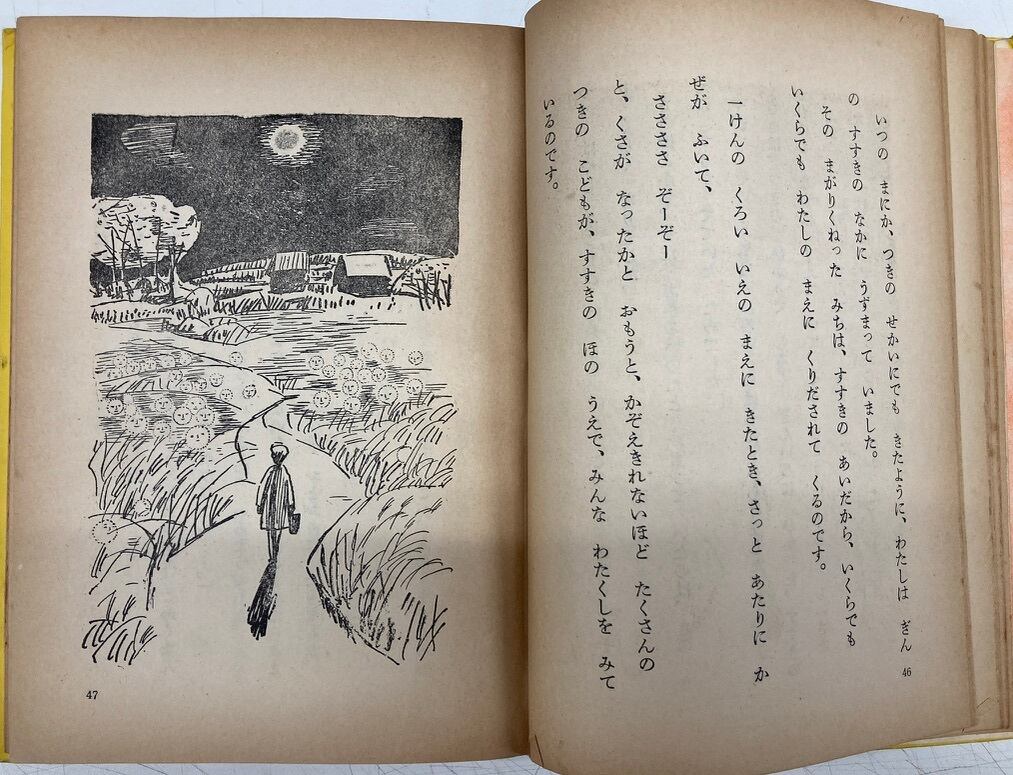 いつの まにか、つきの せかいにでも きたように、わたしは ぎん
の すすきの なかに うずまって いました。
その まがりくねった みちは、すすきの あいだから、いくらでも
いくらでも わたしの まえに くりだされて くるのです。
一けんの くろい いえの まえに きたとき、さっと あたりに か
ぜが ふいて、
ささささ ぞーぞー
と、くさが なったかと おもうと、かぞえきれないほど たくさんの
つきの こどもが、すすきの ほの うえで、みんな わたくしを みて
いるのです。
46
47